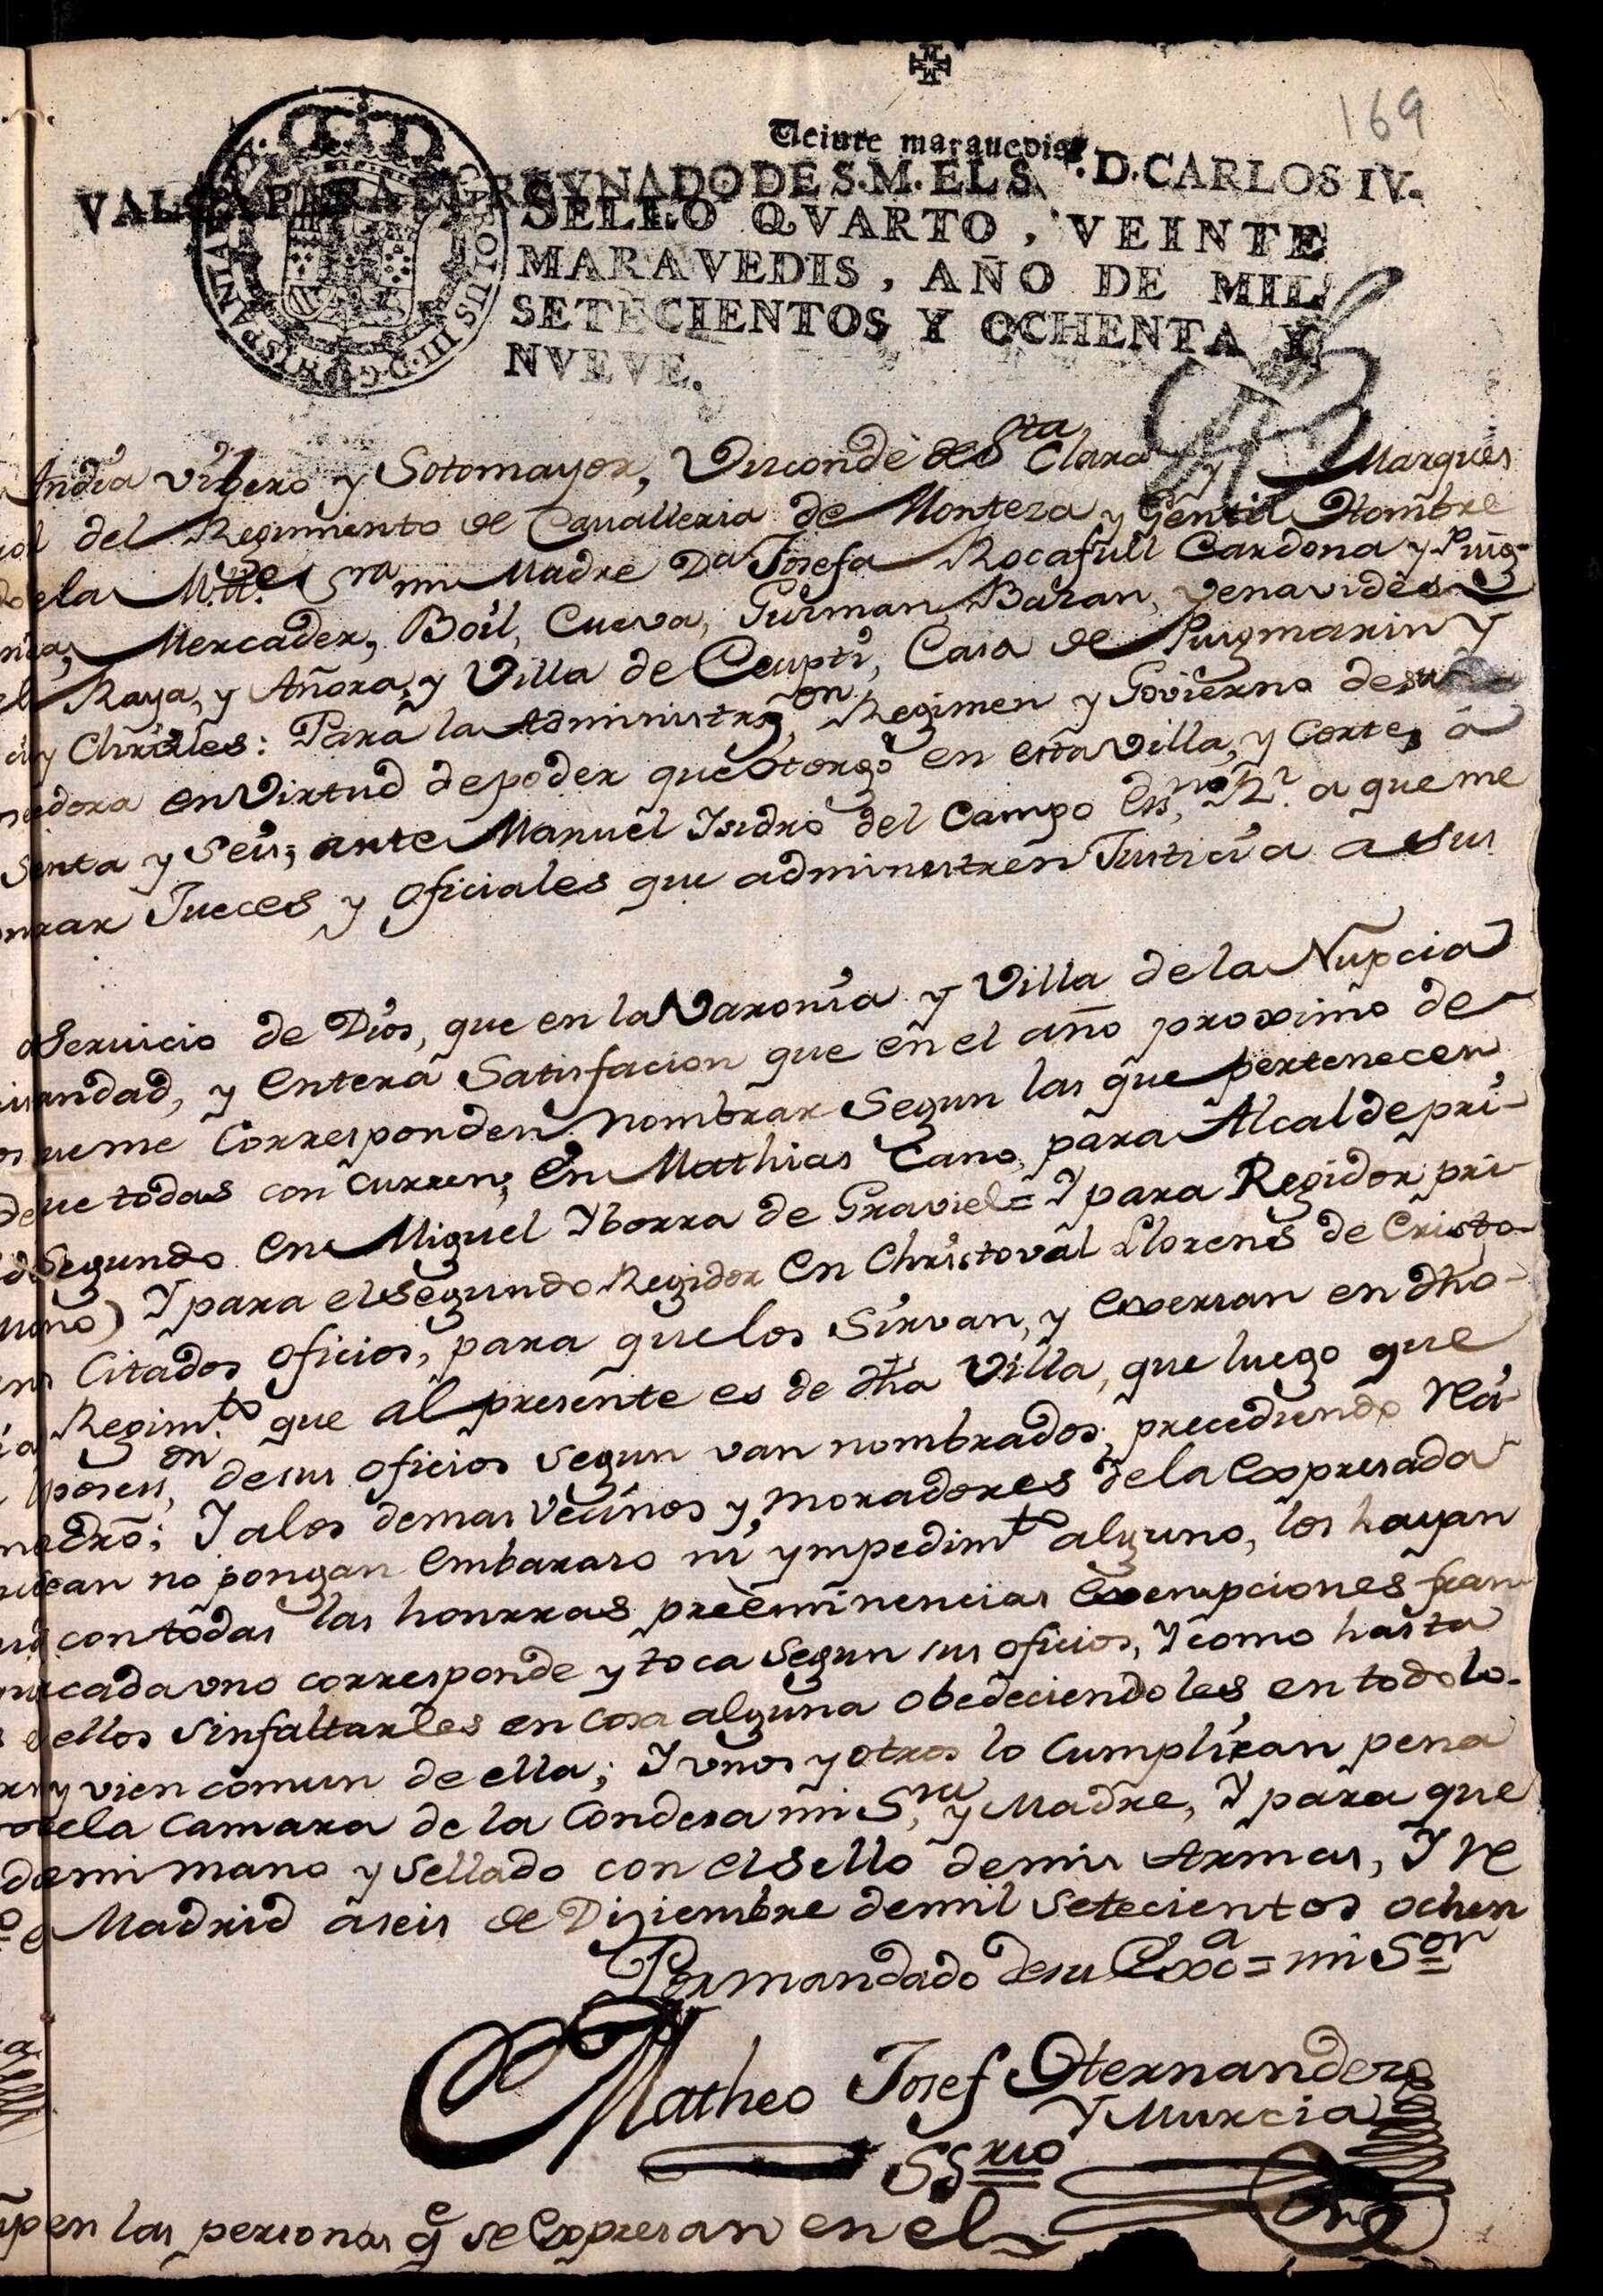 169
Veinte marauedis.
VALGA PARA EL REYNADO DE S.M. EL S.r D. CARLOS IV.
CAROLUS III D. G. HISPANIAR.
SELLO QVARTO, VEINTE
MARAVEDIS, AÑO DE MIL
SETECIENTOS Y OCHENTA Y
NVEVE.
Andia vibero y Sotomayor, Visconde de Sta Clara y Marques
del Regimiento de Cavalleria de Montesa y Gentil Hombre
de la mi Madre Da Josefa Rocafull Cardona y Puig-
Mercader, Boil, Cueva, Gusman, Bazan, Venavides
Raya, y Añora, y Villa de Ceupti, Casa de Puigmarin y
y Chrīales: Para la Administraon, Regimen y Govierno de su
en Virtud de poder que otorgo en esta Villa, y Corte, à
senta y Seis, ante Manuel Isidro del Campo Essno Rl. a que me
Jueces y oficiales que administren Justicia a sus
Servicio de Dios, que en la Varonia y Villa de la Nupcia
y entera Satisfacion que en el año proximo de
que me Corresponden nombrar segun las que pertenecen
que todas concurren, en Mathias Cano para Alcalde pri-
Segundo en Miguel Yborra de Graviel = Y para Regidor pri-
Y para el segundo Regidor en Christoval Llorens de Cristo-
Citados oficios, para que los Sirvan, y exersan en dho
Regimto que al presente es de dha Villa, que luego que
poseson de sus oficios segun van nombrados, precediendo el
Y a los demas vecinos y moradores de la expresada
no pongan embaraso ni ympedimto alguno, los hayan
con todas las honrras preeminencias exempciones fran
cada vno corresponde y toca segun sus oficios, y como hasta
ellos sin faltarles en cosa alguna obedeciendoles en todo lo
y vien comun de ella; Y vnos y otros lo Cumpliran pena
de la Camara de la Condesa mi Sra y Madre, Y para que
de mi mano y sellado con el sello de mis Armas, Y re
Madrid à seis de Diziembre de mil setecientos ochen
Por mandado de su Exa = mi Sor
Matheo Josef Hernandez
Y Murcia
SSrio
en las personas qe se Expresan en el